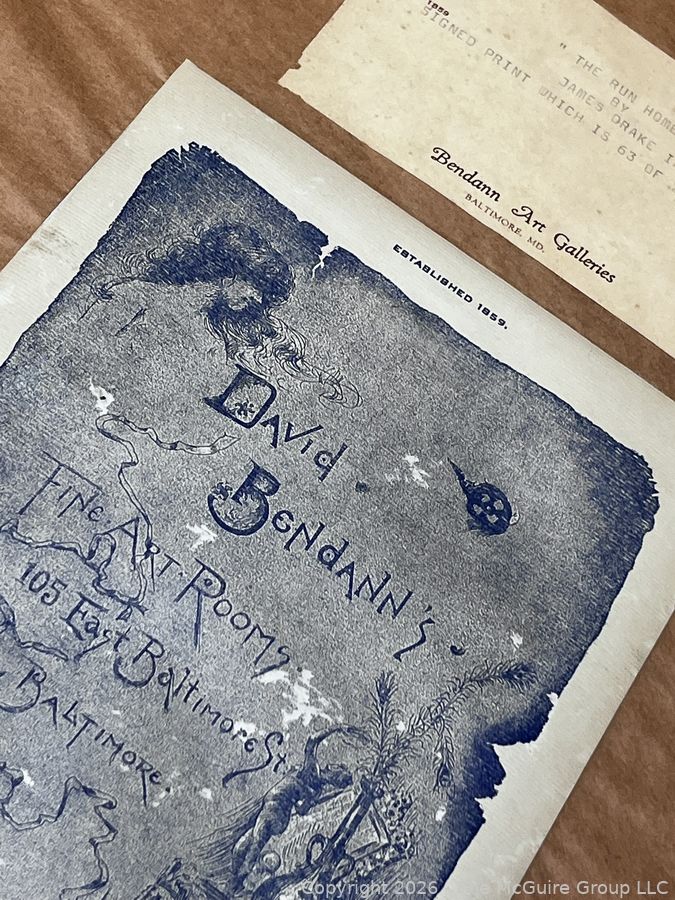 1859
" THE RUN HOME
BY
JAMES DRAKE
SIGNED PRINT WHICH IS 63 OF
Bendann Art Galleries
BALTIMORE, MD.
ESTABLISHED 1859.
David
Bendann's
Fine Art Rooms.
105 East Baltimore St.
Baltimore.
Copyright 2026 The McGuire Group LLC